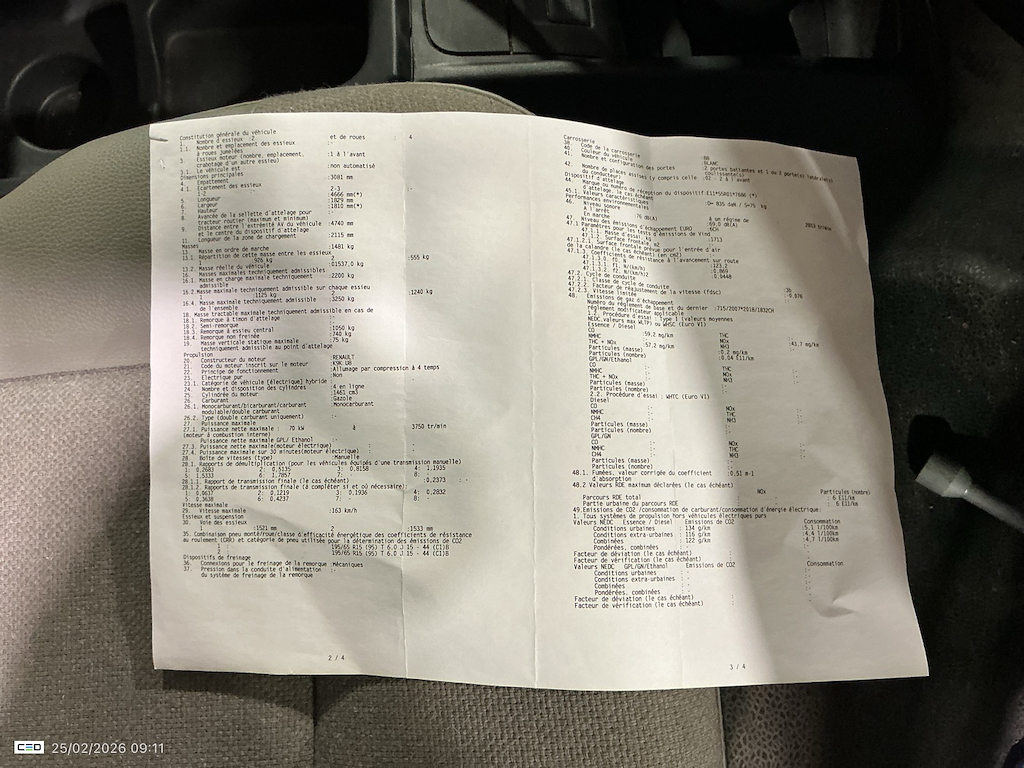 Constitution générale du véhicule
1. Nombre d'essieux :2 et de roues : 4
1.1. Nombre et emplacement des essieux :-
à roues jumelées
3. Essieux moteur (nombre, emplacement, :1 à l'avant
crabotage d'un autre essieu)
3.1. Le véhicule est :non automatisé
Dimensions principales
4. Empattement :3081 mm
4.1. Ecartement des essieux
1-2 2-3
5. Longueur :4666 mm(*)
6. Largeur :1829 mm
7. Hauteur :1810 mm(*)
8. Avancée de la sellette d'attelage pour :-
tracteur routier (maximum et minimum)
9. Distance entre l'extrémité AV du véhicule :4740 mm
et le centre du dispositif d'attelage
11. Longueur de la zone de chargement :2115 mm
Masses
13. Masse en ordre de marche :1481 kg
13.1. Répartition de cette masse entre les essieux
1 :926 kg 2 :555 kg
13.2. Masse réelle du véhicule :01537.0 kg
16. Masses maximales techniquement admissibles
16.1. Masse en charge maximale techniquement :2200 kg
admissible
16.2. Masse maximale techniquement admissible sur chaque essieu
1 :1125 kg 2 :1240 kg
16.4. Masse maximale techniquement admissible :3250 kg
de l'ensemble
18. Masse tractable maximale techniquement admissible en cas de
18.1. Remorque à timon d'attelage :-
18.2. Semi-remorque :-
18.3. Remorque à essieu central :1050 kg
18.4. Remorque non freinée :740 kg
19. Masse verticale statique maximale :75 kg
techniquement admissible au point d'attelage
Propulsion
20. Constructeur du moteur :RENAULT
21. Code du moteur inscrit sur le moteur :K9K U8
22. Principe de fonctionnement :Allumage par compression à 4 temps
23. Électrique pur :Non
23.1. Catégorie de véhicule [électrique] hybride :-
24. Nombre et disposition des cylindres :4 en ligne
25. Cylindrée du moteur :1461 cm3
26. Carburant :Gazole
26.1. Monocarburant/bicarburant/carburant :Monocarburant
modulable/double carburant
26.2. Type (double carburant uniquement) :-
27. Puissance maximale
27.1. Puissance nette maximale : 70 kW à 3750 tr/min
(moteur à combustion interne)
Puissance nette maximale GPL/ Ethanol :-
27.3. Puissance nette maximale(moteur électrique) :
27.4. Puissance maximale sur 30 minutes(moteur électrique) :
28. Boîte de vitesses (type) :Manuelle
28.1. Rapports de démultiplication (pour les véhicules équipés d'une transmission manuelle)
1: 0.2683 2: 0.5135 3: 0.8158 4: 1.1935
5: 1.5333 6: 1.7857 7: - 8: -
28.1.1. Rapport de transmission finale (le cas échéant) :0.2373 :-
28.1.2. Rapports de transmission finale (à compléter si et où nécessaire):
1: 0.0637 2: 0.1219 3: 0.1936 4: 0.2832
5: 0.3638 6: 0.4237 7: - 8: -
Vitesse maximale
29. Vitesse maximale :163 km/h
Essieux et suspension
30. Voie des essieux
1 :1521 mm 2 :1533 mm
35. Combinaison pneu monté/roue/classe d'efficacité énergétique des coefficients de résistance
au roulement (CRR) et catégorie de pneu utilisée pour la détermination des émissions de CO2
1 : 195/65 R15 (95) T 6.0 J 15 - 44 (C1)B
2 : 195/65 R15 (95) T 6.0 J 15 - 44 (C1)B
Dispositifs de freinage
36. Connexions pour le freinage de la remorque :Mécaniques
37. Pression dans la conduite d'alimentation :-
du système de freinage de la remorque
2 / 4
Carrosserie
38. Code de la carrosserie :BB
40. Couleur du véhicule :BLANC
41. Nombre et configuration des portes
42. Nombre de places assises (y compris celle :02
du conducteur)
Dispositif d'attelage
44. Marque ou numéro de réception du dispositif
d'attelage, le cas échéant
45.1. Valeurs caractéristiques :D= 835 daN / S=75 kg
Performances environnementales
46. Niveau sonore
A l'arrêt à un régime de
En marche
47. Niveau des émissions d'échappement EURO
47.1. Paramètres pour les tests d'émissions de Vind
47.1.1. Masse d'essai, kg :1713
47.1.2. Surface frontale, m2
47.1.2.1. Surface frontale prévue pour l'entrée d'air
de la calandre (le cas échéant) (en cm2)
47.1.3. Coefficients de résistance à l'avancement sur route
47.1.3.0. f0, N :123.2
47.1.3.1. f1, N/(km/h) :0.869
47.1.3.2. f2, N/(km/h)2 :0.0448
47.2. Cycle de conduite
47.2.1. Classe de cycle de conduite :3b
47.2.2. Facteur de réajustement de la vitesse (fdsc)
47.2.3. Vitesse limitée
48. Emissions de gaz d'échappement
Numéro du règlement de base et du dernier :715/2007*2018/1832CH
règlement modificatif applicable
1.2. Procédure d'essai : Type I (valeurs moyennes
NEDC,valeurs max WLTP) ou WHSC (Euro VI)
Essence / Diesel
CO :59.2 mg/km THC
NMHC NOx :43.7 mg/km
THC + NOx :57.2 mg/km NH3
Particules (masse) :0.2 mg/km
Particules (nombre) :0.04 E11/km
GPL/GN/Ethanol
CO THC
NMHC NOx
THC + NOx NH3
Particules (masse)
Particules (nombre)
2.2. Procédure d'essai : WHTC (Euro VI)
Diesel
CO NOx
NMHC THC
CH4 NH3
Particules (masse)
Particules (nombre)
GPL/GN
CO NOx
NMHC THC
CH4 NH3
Particules (masse)
Particules (nombre)
48.1. Fumées, valeur corrigée du coefficient :0.51 m-1
d'absorption
48.2 Valeurs RDE maximum déclarées (le cas échéant)
NOx Particules (nombre)
Parcours RDE total : 6 E11/km
Partie urbaine du parcours RDE : 6 E11/km
49.Emissions de CO2 /consommation de carburant/consommation d'énergie électrique:
1. Tous systèmes de propulsion hors véhicules électriques purs
Valeurs NEDC Essence / Diesel Emissions de CO2 Consommation
Conditions urbaines : 134 g/km :5.1 l/100km
Conditions extra-urbaines : 116 g/km :4.4 l/100km
Combinées : 122 g/km :4.7 l/100km
Pondérées, combinées : -
Facteur de déviation (le cas échéant)
Facteur de vérification (le cas échéant)
Valeurs NEDC GPL/GN/Ethanol Emissions de CO2 Consommation
Conditions urbaines : -
Conditions extra-urbaines : -
Combinées : -
Pondérées, combinées : -
Facteur de déviation (le cas échéant)
Facteur de vérification (le cas échéant)
3 / 4
CEO 25/02/2026 09:11